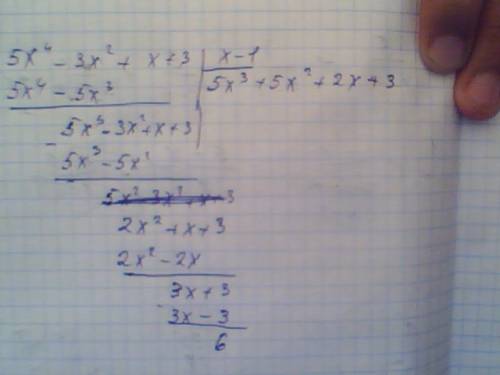 5x⁴ - 3x² + x + 3 | x - 1
5x⁴ - 5x³ | 5x³ + 5x² + 2x + 3
5x³ - 3x² + x + 3
- 5x³ - 5x²
2x² + x + 3
2x² - 2x
3x + 3
- 3x - 3
6